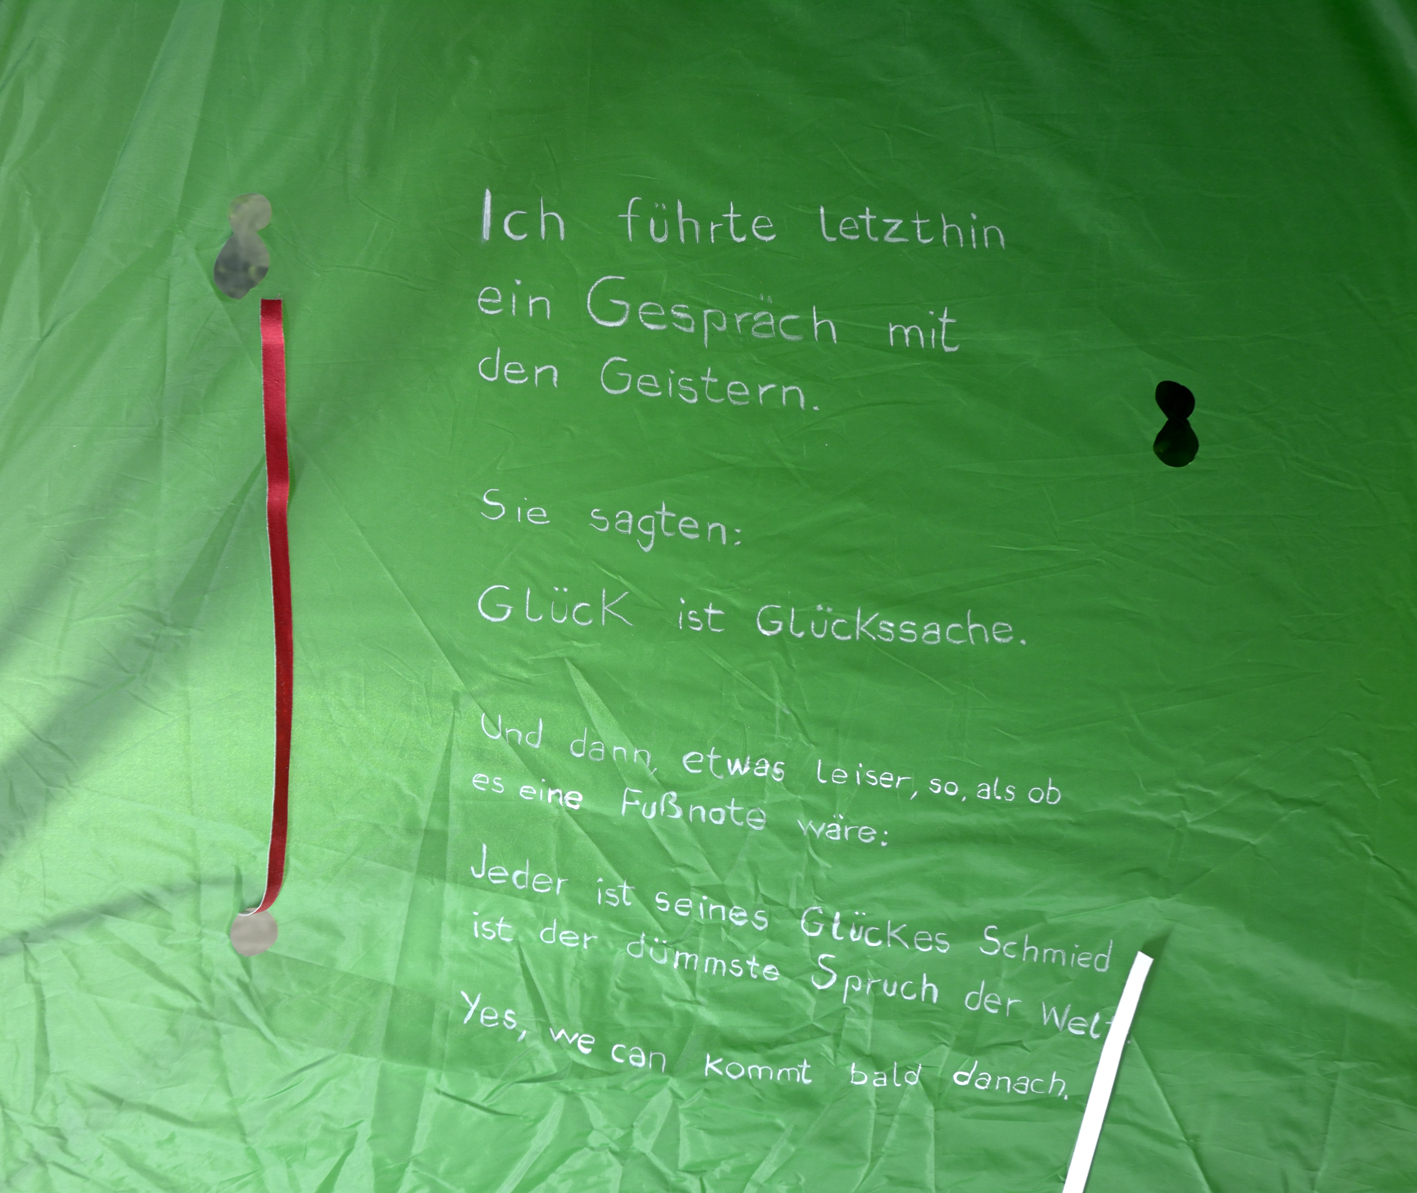 Ich führte letzthin
ein Gespräch mit
den Geistern.
Sie sagten:
Glück ist Glückssache.
Und dann, etwas leiser, so, als ob
es eine Fußnote wäre:
Jeder ist seines Glückes Schmied
ist der dümmste Spruch der Welt
Yes, we can kommt bald danach.